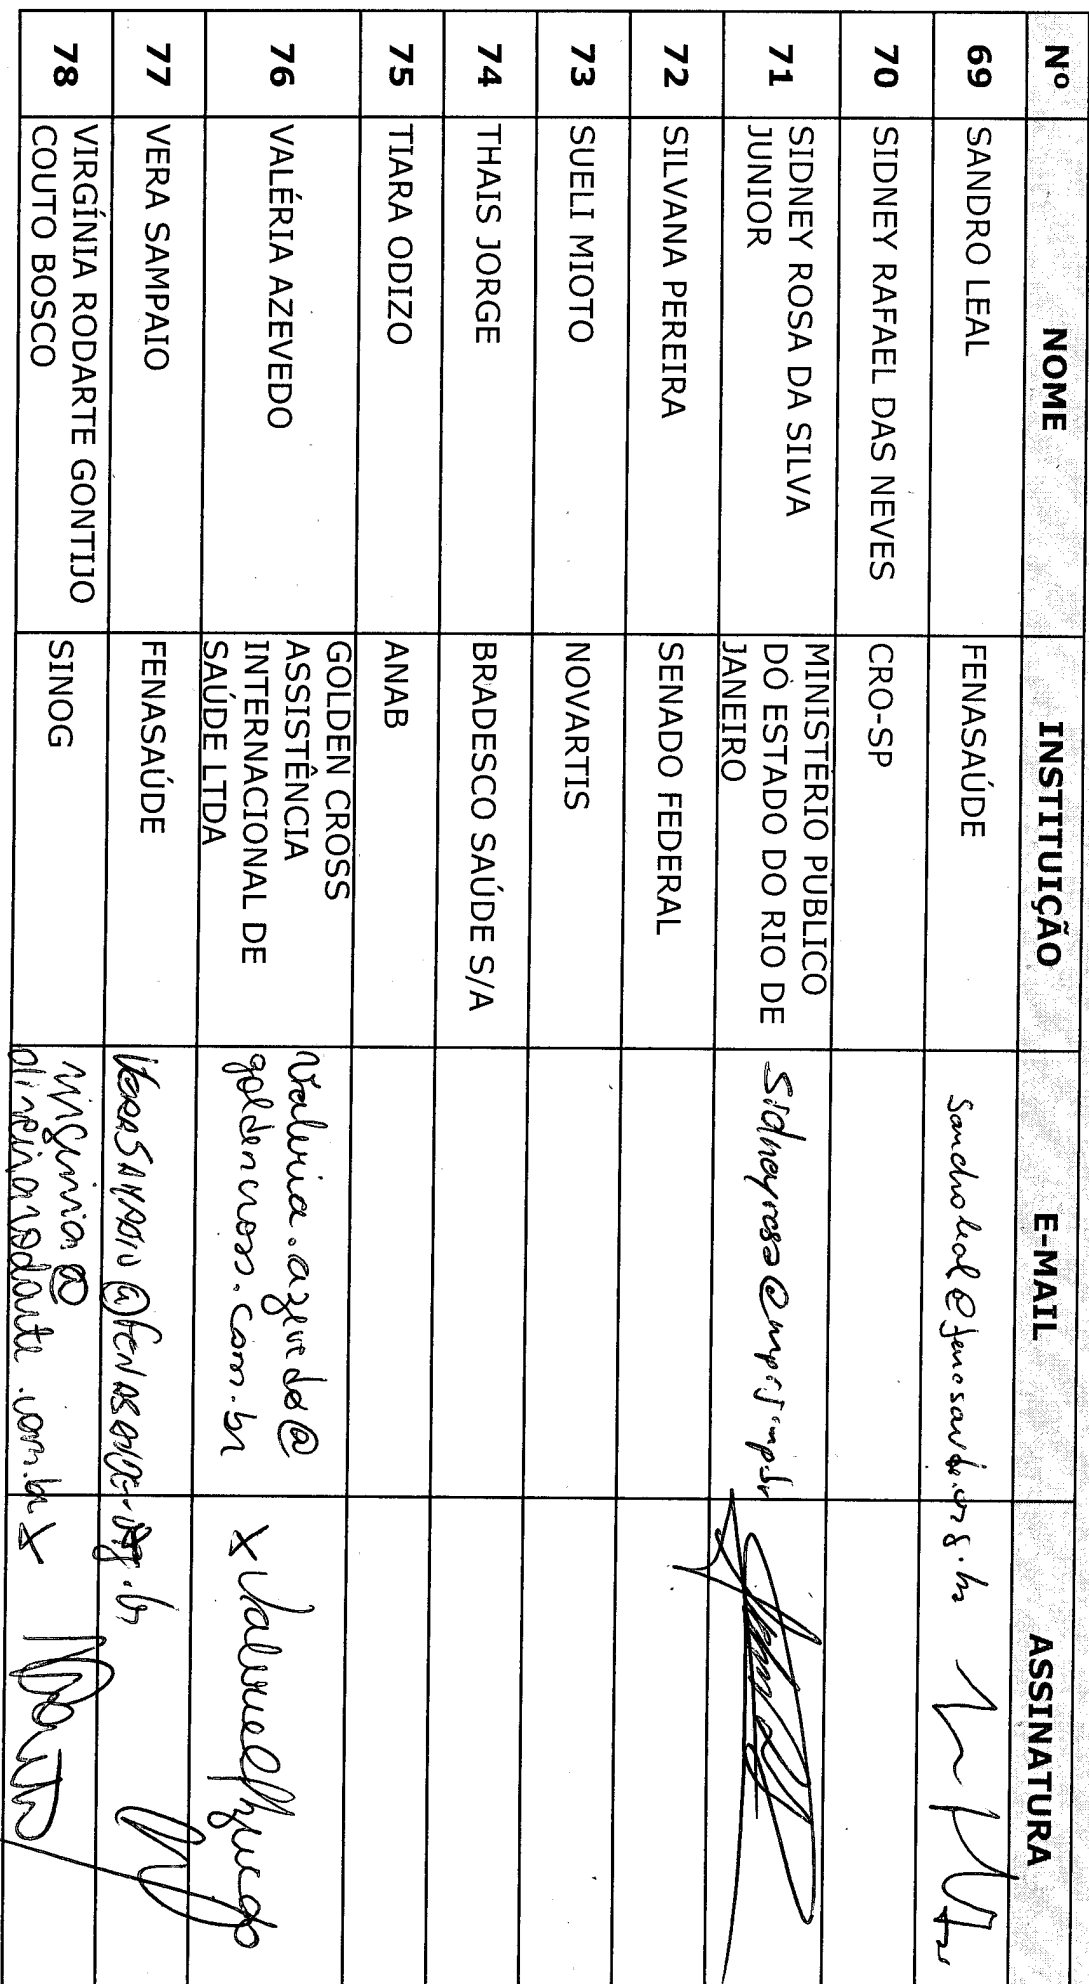 Nº NOME INSTITUIÇÃO E-MAIL ASSINATURA
69 SANDRO LEAL FENASAÚDE sandroleal@fenasaude.org.br
70 SIDNEY RAFAEL DAS NEVES CRO-SP
71 SIDNEY ROSA DA SILVA
JUNIOR
MINISTÉRIO PÚBLICO
DO ESTADO DO RIO DE
JANEIRO
Sidneyrosa@mprj.mp.br
72 SILVANA PEREIRA SENADO FEDERAL
73 SUELI MIOTO NOVARTIS
74 THAIS JORGE BRADESCO SAÚDE S/A
75 TIARA ODIZO ANAB
76 VALÉRIA AZEVEDO
GOLDEN CROSS
ASSISTÊNCIA
INTERNACIONAL DE
SAÚDE LTDA
Valeria.azevedo@
goldencross.com.br
X
77 VERA SAMPAIO FENASAÚDE
78 VIRGÍNIA RODARTE GONTIJO
COUTO BOSCO
SINOG
virginia@
clinicarodarte.com.br X